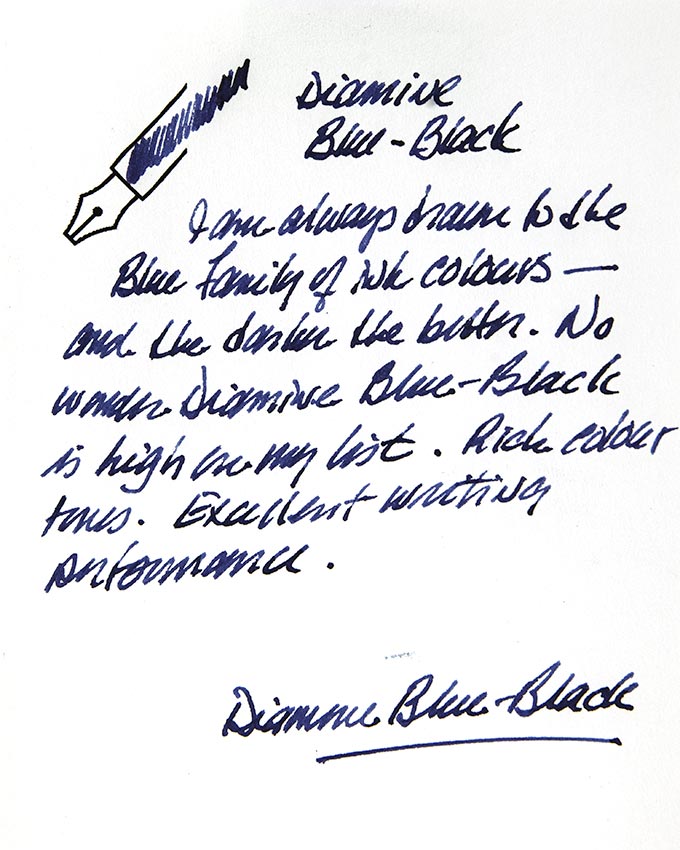 Diamine
Blue-Black
I am always drawn to the
Blue family of ink colours —
and the darker the better. No
wonder Diamine Blue-Black
is high on my list. Rich colour
tones. Excellent writing
performance.
Diamine Blue-Black